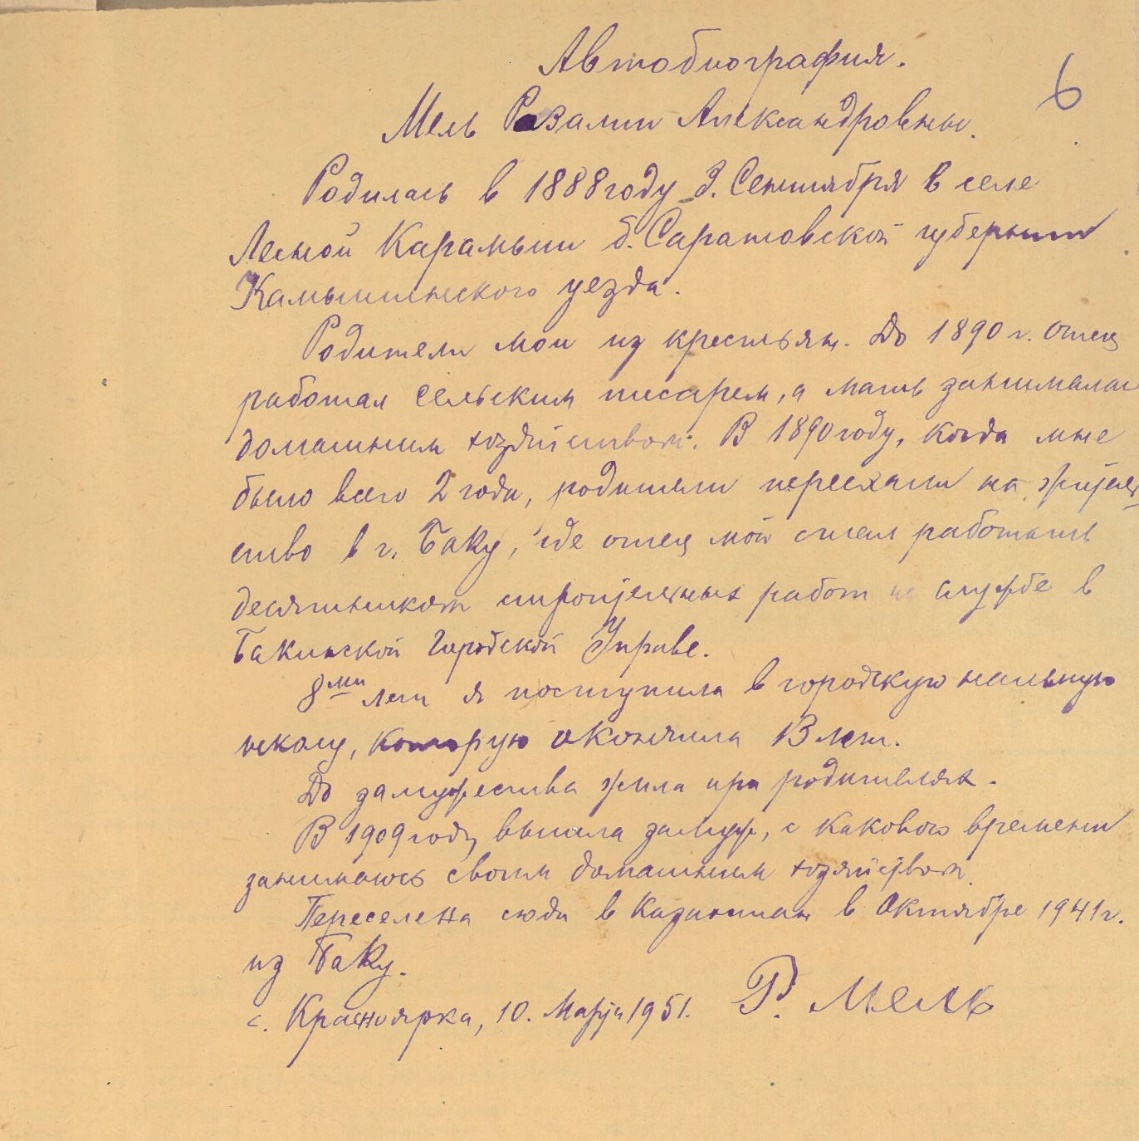 Автобиография.
6
Мель Розалии Александровны.
Родилась в 1888 году 3. Сентября в селе
Лесной Карамыш б. Саратовской губернии
Камышинского уезда.
Родители мои из крестьян. До 1890 г. отец
работал сельским писарем, а мать занималась
домашним хозяйством. В 1890 году, когда мне
было всего 2 года, родители переехали на жител
ство в г. Баку, где отец мой стал работать
десятником строительных работ на службе в
Бакинской Городской Управе.
8ми лет я поступила в городскую начальную
школу, которую окончила 13 лет.
До замужества жила при родителях.
В 1909 году вышла замуж, с какового времени
занимаюсь своим домашним хозяйством.
Переселена сюда в Казахстан в Октябре 1941 г.
из Баку.
с. Красноярка, 10. Марта 1951. Р. Мель